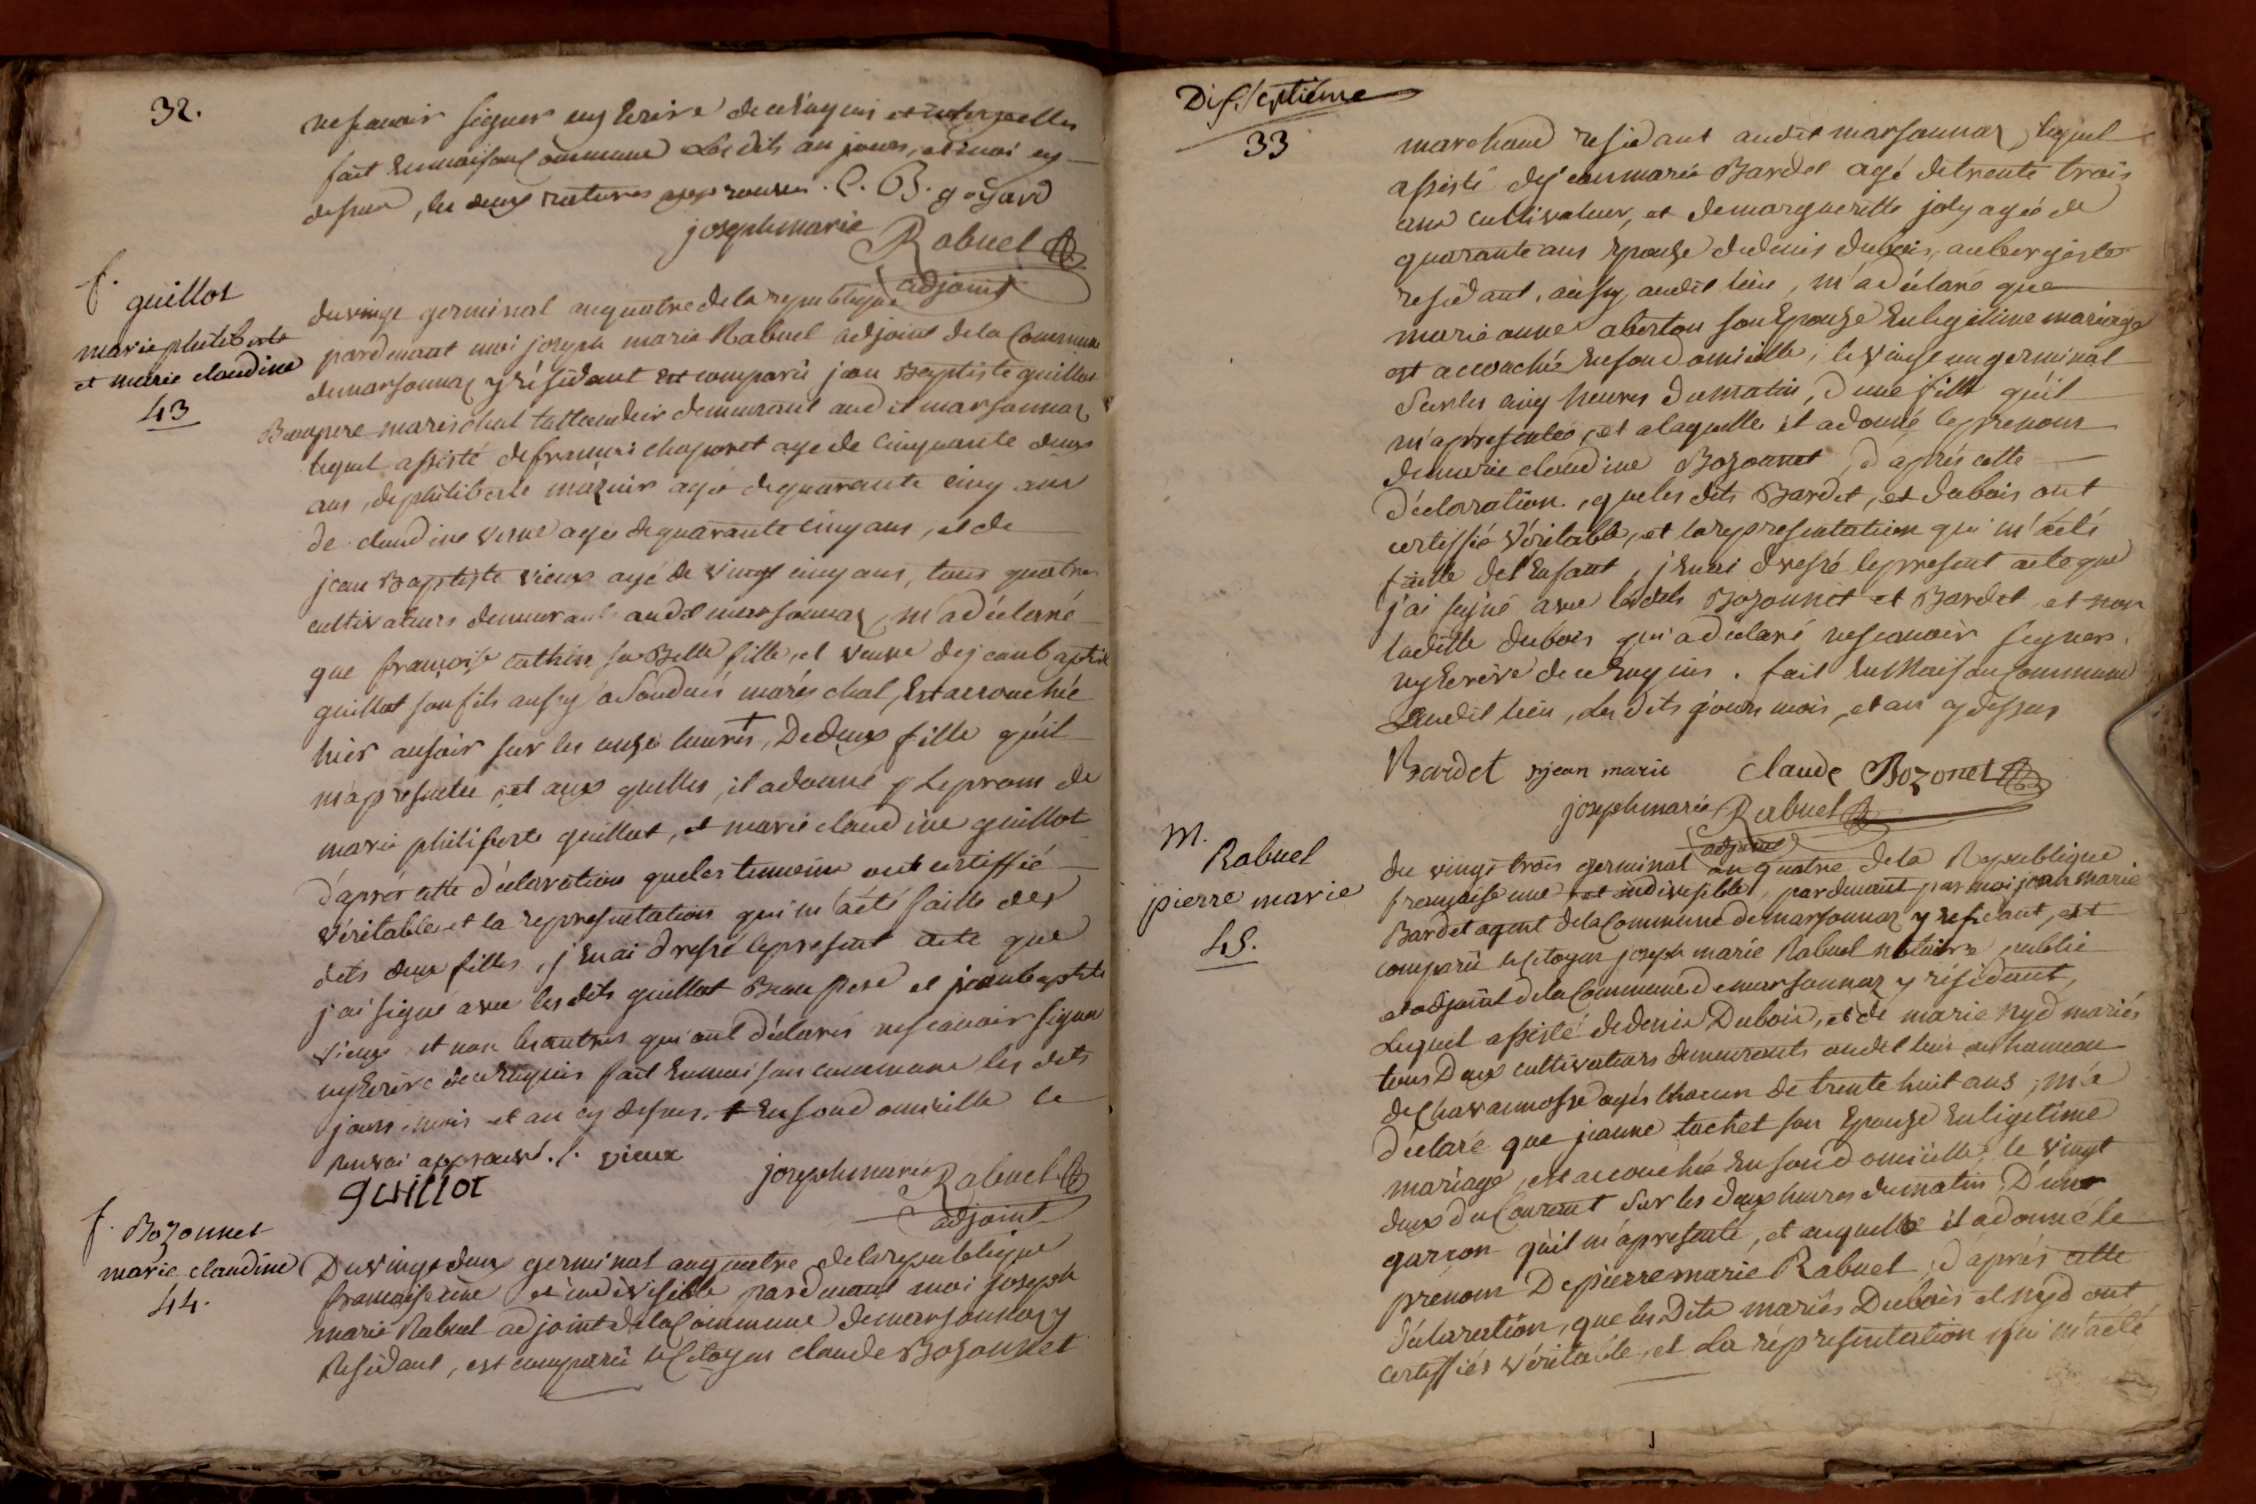 32.
ne scavoir signer ny Ecrire de ce Enquis et interpelles
fait En maison Commune Les dits an jours, et mois cy
dessus, les deux ratures approuvées. C. B. goyard
joseph marie Rabuel
adjoint
f. guillot
marie philiberte
et marie claudine
43
du vingt germinal an quatre de la republique
pardevant moi joseph marie Rabuel adjoint de la Commune
de marsonnaz y résidant Est comparu jean Baptiste guillot
Beau pere mareschal taillandier demeurant audit marsonnaz
lequel assisté de francois chaponet agé de Cinquante deux
ans, de philiberte mazuir agée de quarante cinq ans
de claudine verne agée de quarante cinq ans, et de
jean Baptiste vieux agé de vingt cinq ans, tous quatre
cultivateurs demeurants audit marsonnaz, m'a déclaré
que francoise cathin sa Belle fille, et veuve de jean baptiste
guillot son fils aussy a Son dués maréschal, Est accouchée
hier au soir sur les onze heures +, De deux fille qu'il
m'a presentée, et aux quelles, il a donné Le prenom de
marie philiberte guillot, et marie claudine guillot
d'après cette déclaration que les temoins ont certiffié
véritable et la representation qui m'a été faitte des
dits deux filles, j'En ai dressé le present acte que
j'ai signé avec les dits guillot Beau pere et jean baptiste
vieux et non les autres qui ont déclarés ne scavoir signer
ny Ecrire de ce Enquis fait En maison commune les dits
jours, mois et an cy dessus. + En son domicille le
Renvoi approuvé. j. vieux
guillot
joseph marie Rabuel
adjoint
f. Bozonnet
marie claudine
44.
Du vingt deux germinal an quatre de la republique
francaise une et indivisible pardevant moi joseph
marie Rabuel adjoint de la Commune de marsonnaz y
Residant, est comparu le Citoyen claude Bozonnet
Dix Septième
33
marchand residant audit marsonnaz, lequel
assisté de jean marie Bardet agé de trente trois
ans cultivateur, et de marguerite joly agée de
quarante ans Epouse de denis dubois, aubergiste
residant, aussy, audit lieu, m'a déclaré que
marie anne aberton son Epouse En legitime mariage
est accouchée En son domicille, le vingt un germinal
Sur les cinq heures du matin, d'une fille qu'il
m'a présentée, et a laquelle il a donné le prenom
de marie claudine Bozonnet, d'après cette
déclaration, que les dits Bardet, et dubois ont
certiffié Véritable, et la representation qui m'a été
faitte de l'Enfant, j'En ai dressé le present acte que
j'ai signé avec les dits Bozonnet et Bardet, et non
la ditte dubois qui a declaré ne scavoir signer
ny Ecrire de ce Enquis. fait En Maison Commune
Dudit lieu, Les dits jours mois, et an cy dessus
Bardet jean marie claude Bozonet
joseph marie Rabuel
adjoint
M.
Rabuel
pierre marie
45.
du vingt trois germinal an quatre de la Republique
francaise une et indivisible, pardevant par moi jean marie
Bardet agent de la Commune de marsonnaz y residant, est
comparu le Citoyen joseph marie Rabuel notaire public
et adjoint de la Commune de marsonnaz y résidant,
Lequel assisté de denis Dubois, et de marie nyd mariés
tous Deux cultivateurs demeurants audit lieu au hameau
de Chavannosse agés Chacun de trente huit ans, m'a
déclaré que jeanne tachet son Epouse En legitime
mariage, est accouchée En son domicille, le vingt
deux du Courant Sur les deux heures du matin, D'une
garcon qu'il m'a presenté, et auquelle il a donné le
prénom De pierre marie Rabuel, d'après cette
déclaration, que les Dits mariés Dubois et nyd ont
certiffiés véritable, et La représentation qui m'a été